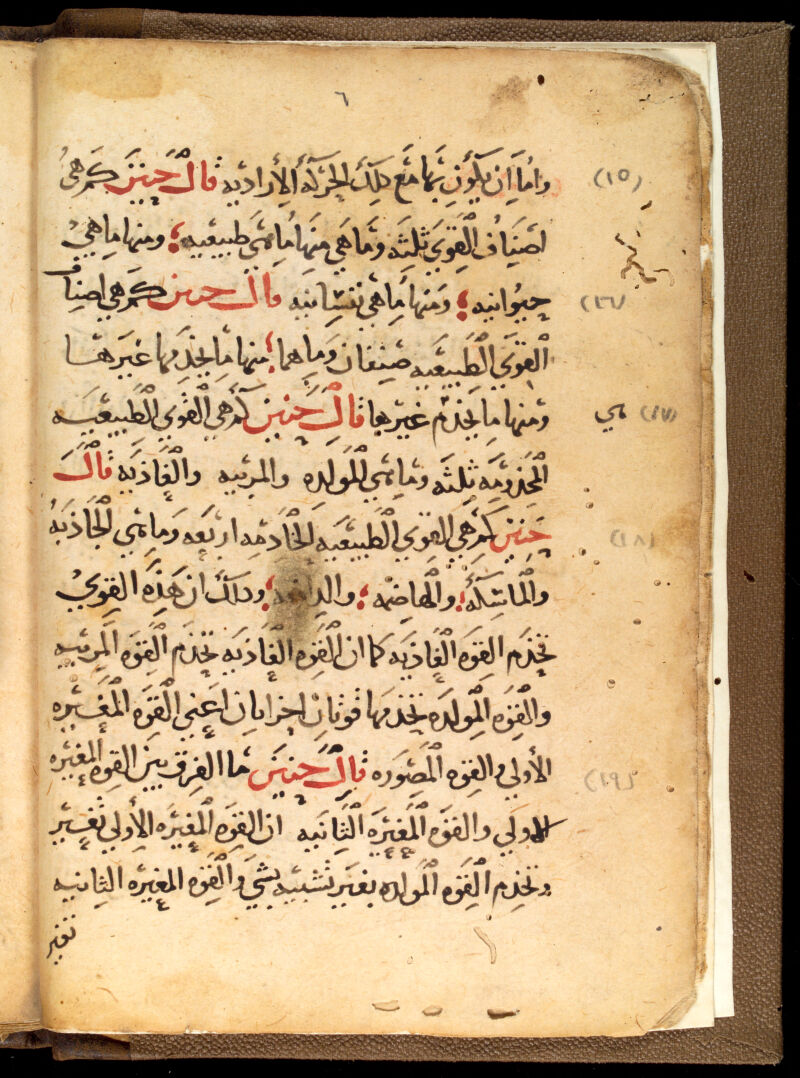 ٦
واما ان يكون بها مع ذلك الحركة الأرادية قال حنين كم هي (١٥)
اصناف القوى ثلثه وما هي منها ما هي طبيعيه ؛ ومنها ما هي
حيوانيه ؛ ومنها ما هي نفسانيه قال حنين كم هي اصناف (١٦)
القوى الطبيعيه صنفان وما هما ؛ منها ما يخدمها غيرها
ومنها ما يخدم غيرها قال حنين كم هي القوى الطبيعيه هي (١٧)
المخدومه ثلثه وما هي المولده والمربيه والغاذيه قال
حنين كم هي القوى الطبيعيه الخادمه اربعه وما هي الجاذبه (١٨)
والماسكه ؛ والهاضمه ؛ والدافعه ؛ وذلك ان هذه القوى
تخدم القوه الغاذيه كما ان القوه الغاذيه تخدم القوه المربيه
والقوه المولده يخدمها قوتان اخرايان اعني القوه المغيره
الأولى والقوه المصوره قال حنين ما الفرق بين القوه المغيره (١٩)
الاولى والقوه المغيره الثانيه ان القوه المغيره الأولى تغير
وتخدم القوه المولده بغير تشبيه بشي والقوه المغيره الثانيه
تغير